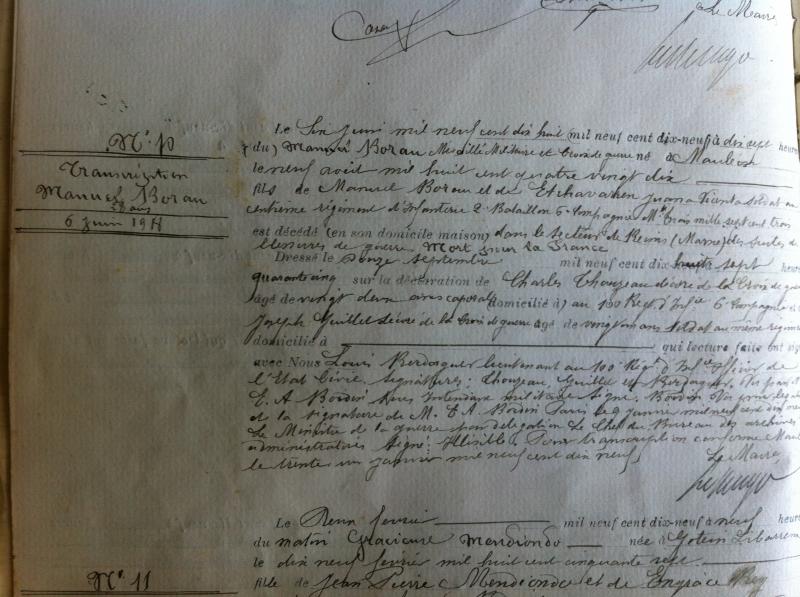 Le Maire
N° 10
Transcription
Manuel Borau
6 Juin 1918
Le Six Juin mil neuf cent dix huit mil neuf cent dix-neuf à dix sept heures
du Manuel Borau Médaille Militaire et Croix de guerre né à Mauléon
le neuf août mil huit cent quatre vingt dix
fils de Manuel Borau et de Etchavarren Juana Soldat au
centième régiment d'Infanterie 2e Bataillon 6e Compagnie Mle trois mille sept cent trois
est décédé (en son domicile maison) dans le secteur de Reims (Marne) des suites de
blessures de guerre Mort pour la France
Dressé le onze Septembre mil neuf cent dix-huit à sept heures
quarante cinq sur la déclaration de Charles Thouzeau décoré de la Croix de guerre
âgé de vingt deux ans caporal domicilié à au 100 Regt d'Infie 6 Compagnie et
Joseph Guillet décoré de la Croix de guerre âgé de vingt un ans Soldat au même régiment
domicilié à qui lecture faite ont signé
avec Nous Louis Berdaguer lieutenant au 100 Regt d'Infie officier de
l'Etat Civil, Signatures: Thouzeau, Guillet et Berdaguer. Vu par
E. A. Bordin Sous Intendant militaire Signé: Bordin. Vu pour légalisation
de la signature de M. E. A. Bordin Paris le 9 janvier mil neuf cent dix neuf
Le Ministre de la guerre par délégation Le Chef du Bureau des archives
administratives Signé: Illisible. Pour transcription conforme Mauléon
le trente un janvier mil neuf cent dix neuf
Le Maire,
Le Deux février mil neuf cent dix-neuf à neuf heures
du matin Gracieuse Mendiondo née à Gotein Libarrenx
le dix neuf février mil huit cent cinquante sept
N° 11
fille de Jean Pierre Mendiondo et de Engrace